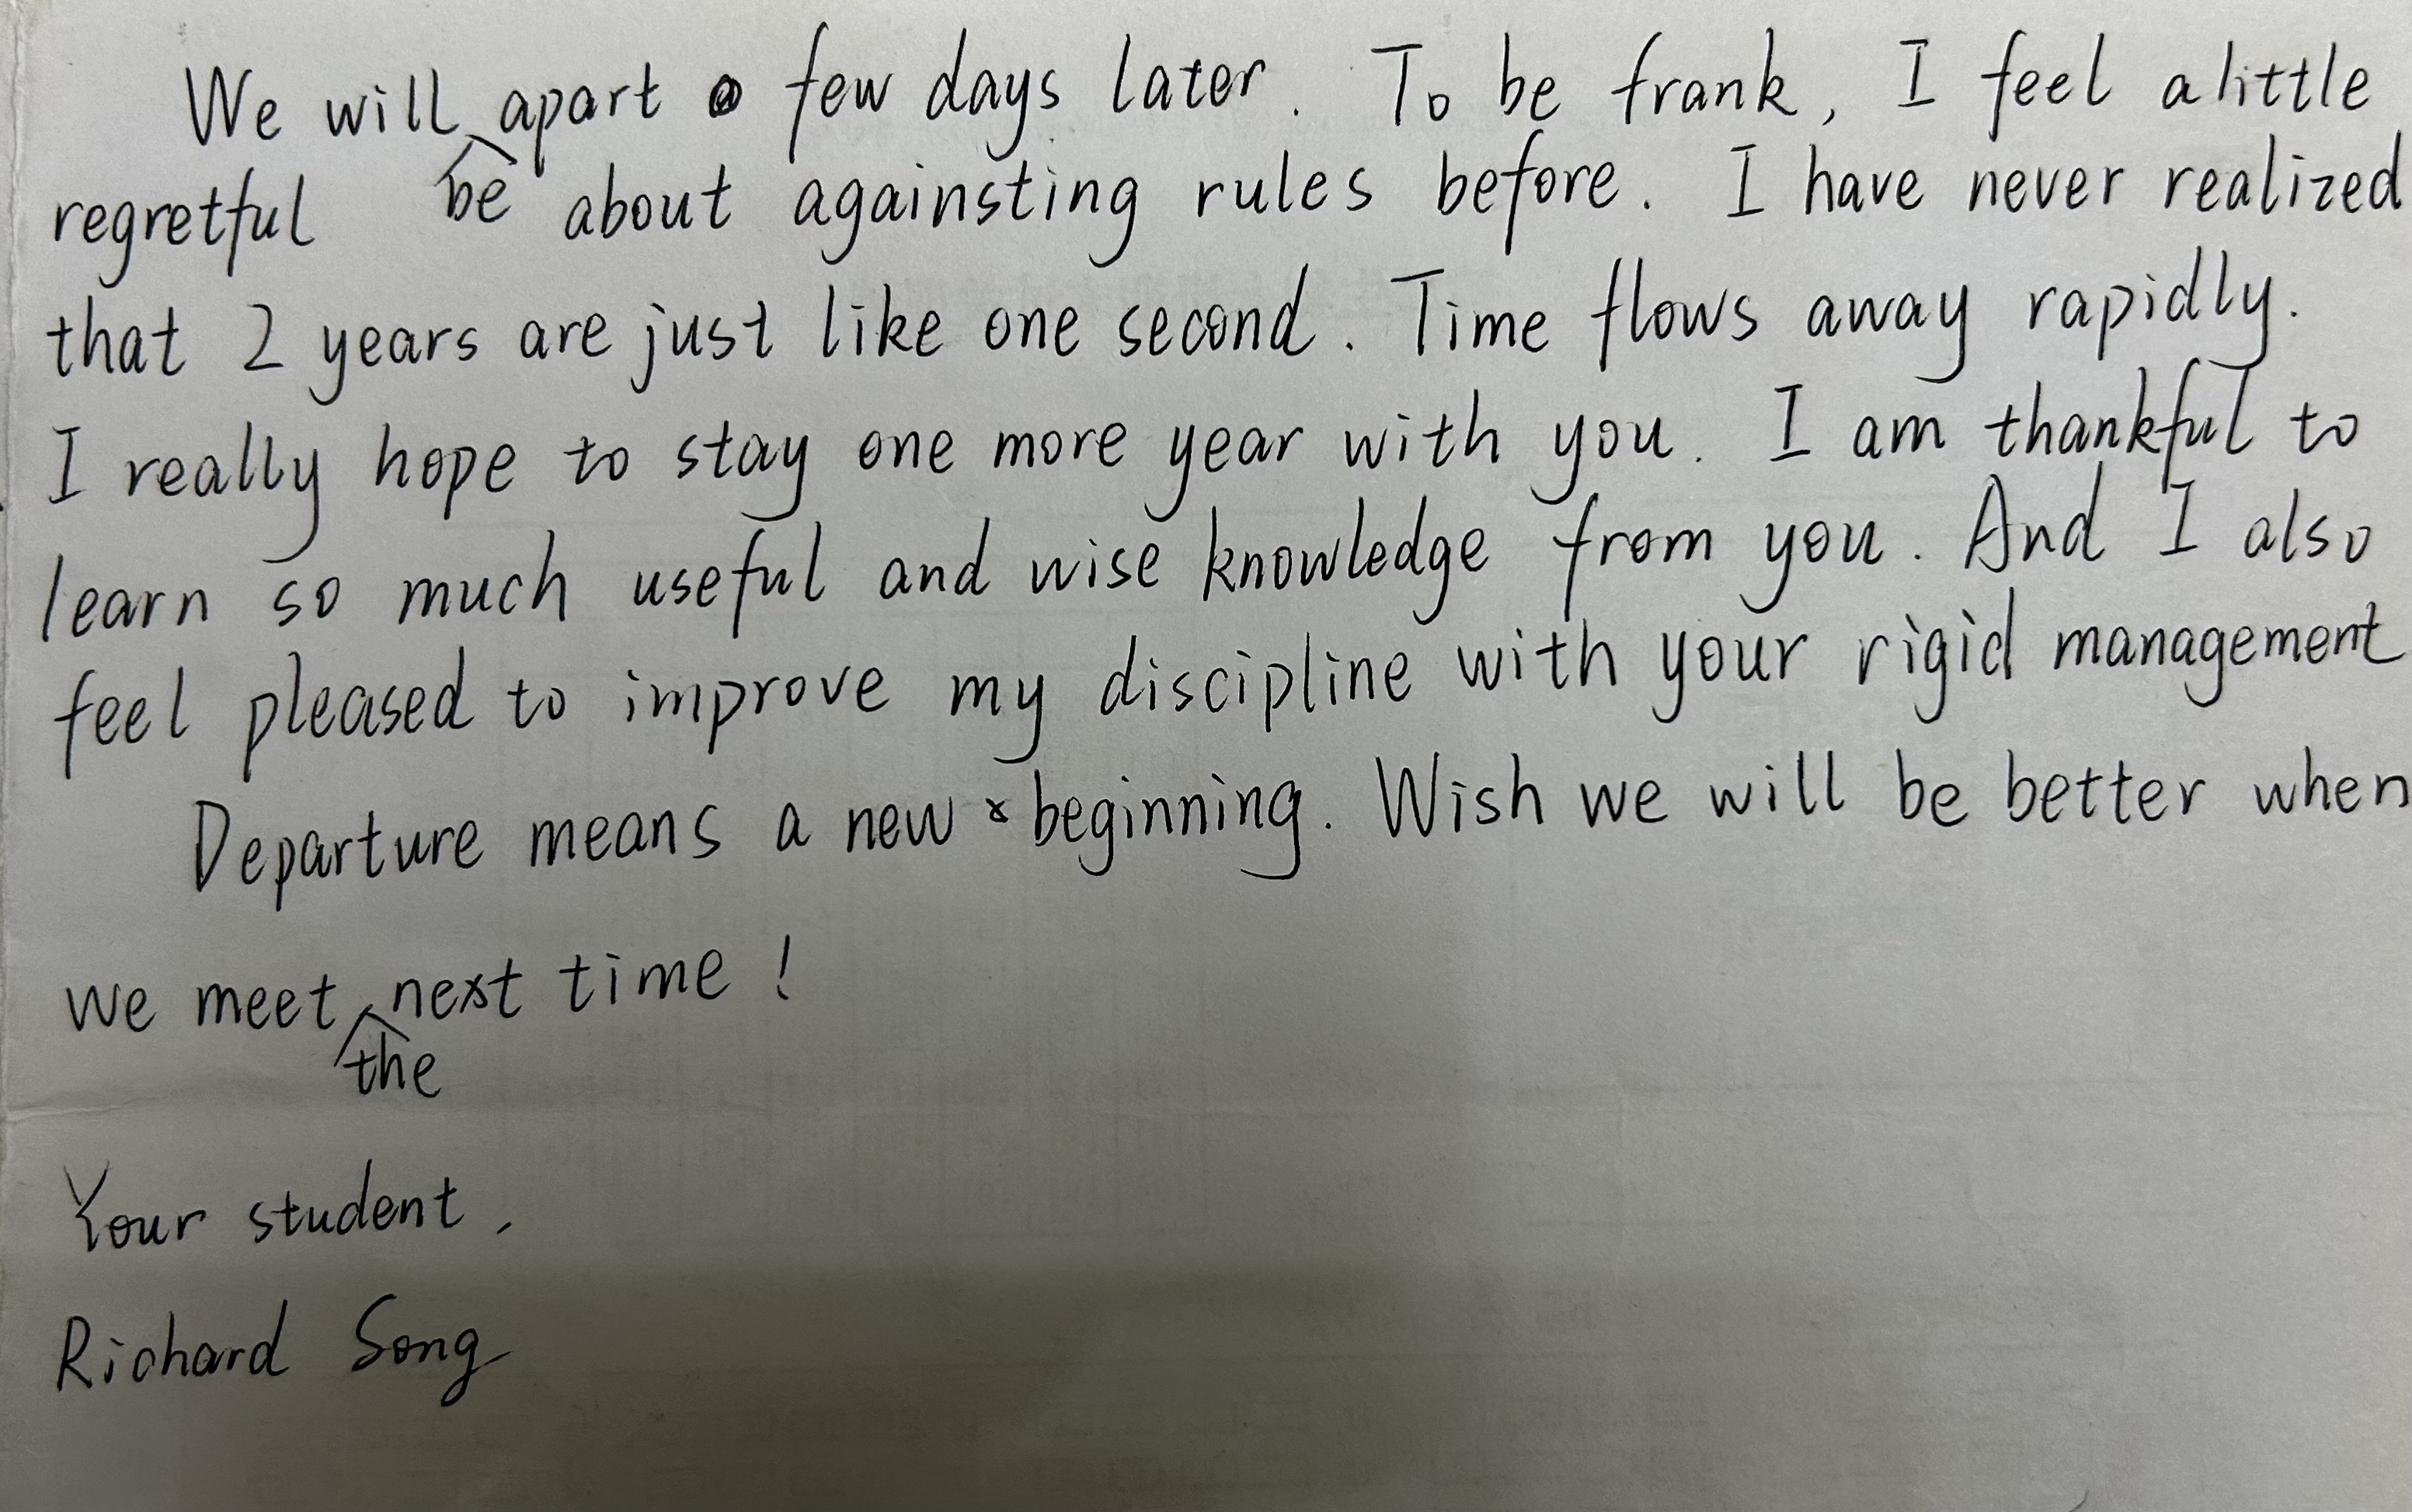 We will be apart a few days later. To be frank, I feel a little
regretful about againsting rules before. I have never realized
that 2 years are just like one second. Time flows away rapidly.
I really hope to stay one more year with you. I am thankful to
learn so much useful and wise knowledge from you. And I also
feel pleased to improve my discipline with your rigid management
Departure means a new beginning. Wish we will be better when
we meet the next time!
Your student,
Richard Song